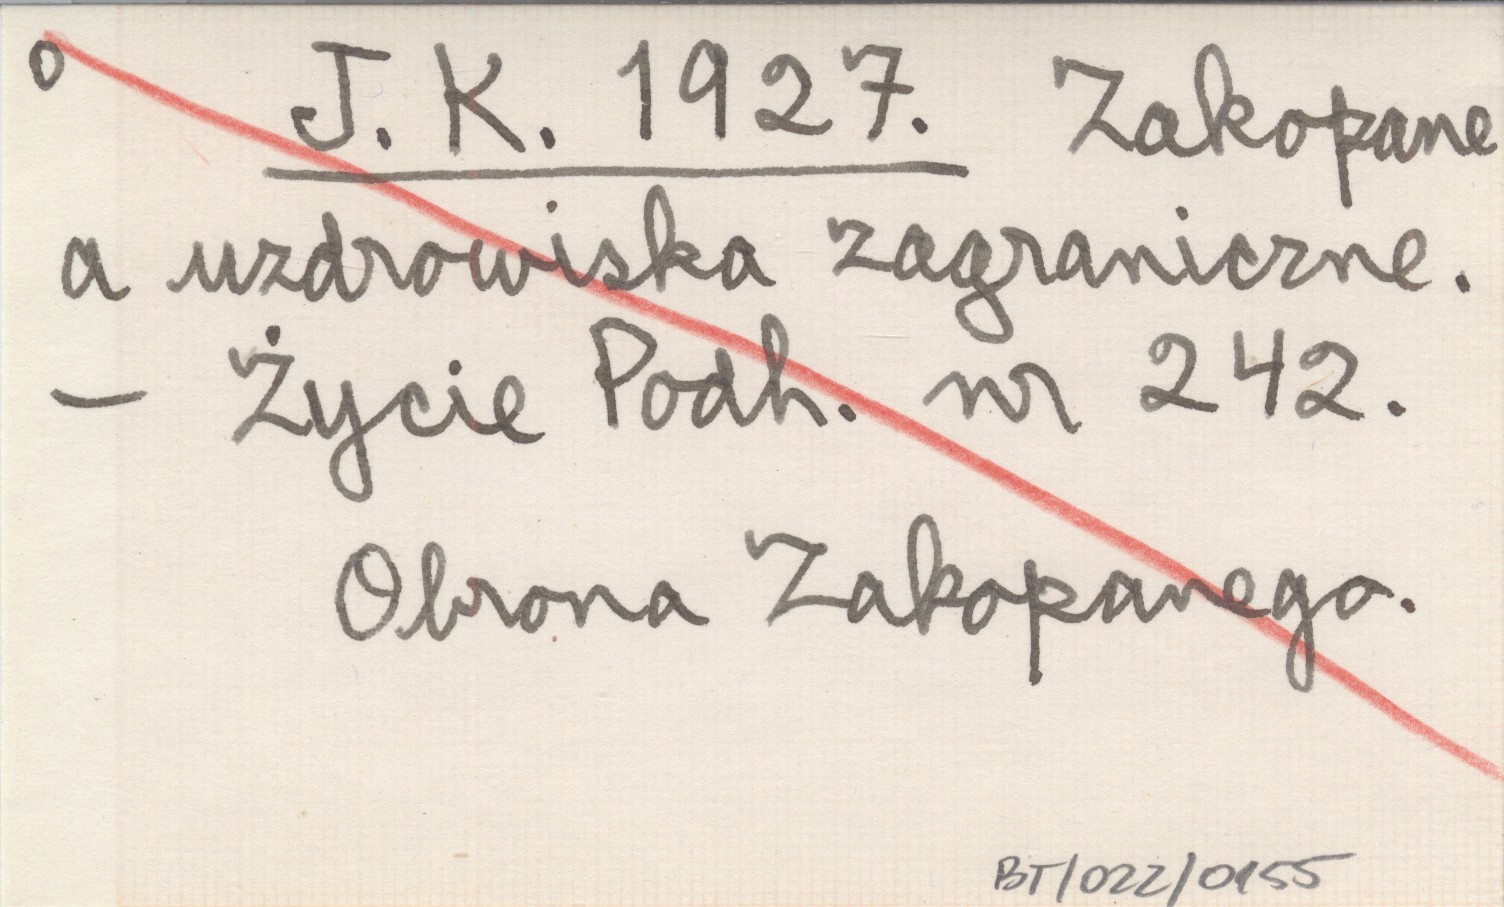 o J. K. 1927. Zakopane
a uzdrowiska zagraniczne.
– Życie Podh. nr 242.
Obrona Zakopanego.
BT/022/0155